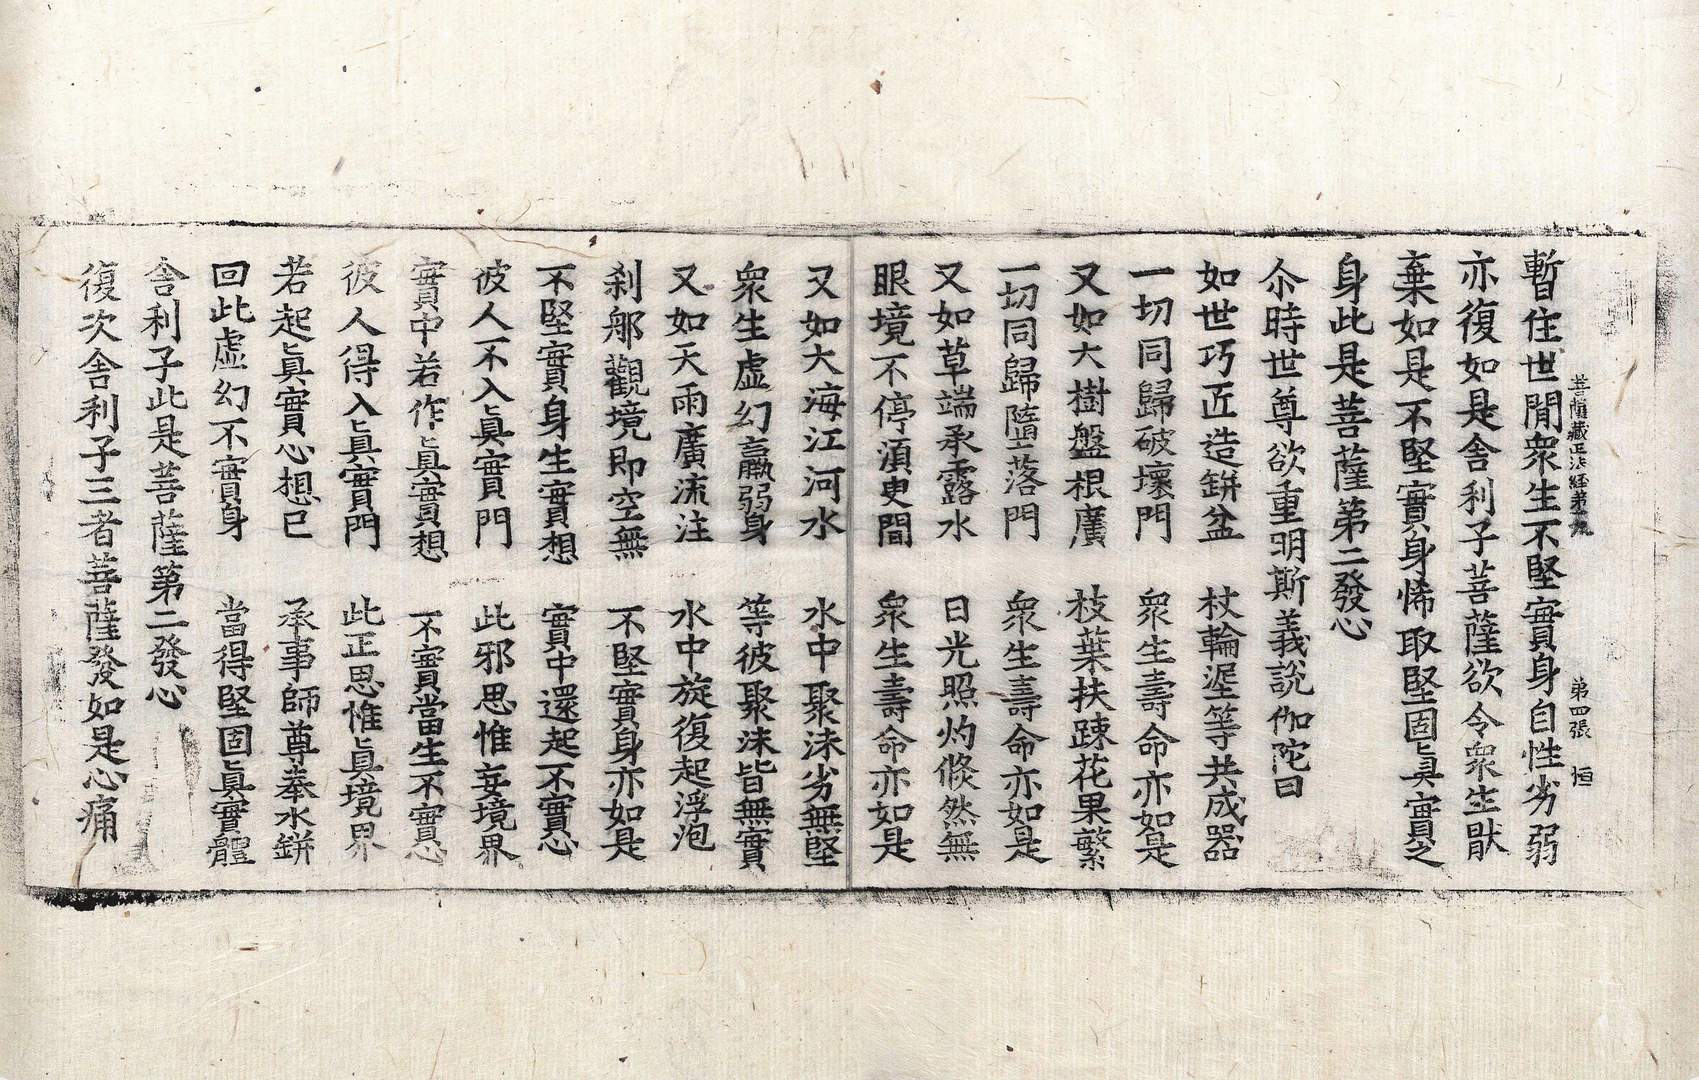 菩薩藏正法経苐九 第四張 恒
暫住世間衆生不堅實身自性劣弱
亦復如是舍利子菩薩欲令衆生猒
棄如是不堅實身悕取堅固真實之
身此是菩薩第二發心
尒時世尊欲重明斯義說伽陀曰
如世巧匠造缾盆 杖輪埿等共成器
一切同歸破壞門 衆生壽命亦如是
又如大樹盤根廣 枝葉扶踈花果繁
一切同歸墮落門 衆生壽命亦如是
又如草端承露水 日光照灼倐然無
眼境不停湏臾間 衆生壽命亦如是
又如大海江河水 水中聚沫劣無堅
衆生虛幻羸弱身 等彼聚沫皆無實
又如天雨廣流注 水中旋復起浮泡
刹那觀境即空無 不堅實身亦如是
不堅實身生實想 實中還起不實心
彼人不入真實門 此邪思惟妄境界
實中若作真實想 不實當生不實心
彼人得入真實門 此正思惟真境界
若起真實心想已 承事師尊奉水缾
回此虛幻不實身 當得堅固真實體
舍利子此是菩薩第二發心
復次舍利子三者菩薩發如是心痛